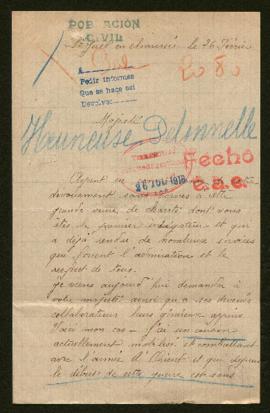 POBLACIÓN
CIVIL
St Just en chaussée le 26 Février
2080
A
Pedir informes
Que se hace así
Devolver
Majesté
Heuneuse Delonnelle
Fecho
Ayant en
dévouement sans bornes à cette
grande œuvre de charité dont vous
êtes le premier instigateur et qui
a déjà rendu de nombreux services
qui forcent l'admiration et le
respect de tous.
Je viens aujourd'hui demander à
votre majesté ainsi qu'à ses dévoués
collaborateurs leurs généreux appuis
Voici mon cas - J'ai un cousin
actuellement mobilisé et combattant
avec l'armée d'Orient et qui depuis
le début de cette guerre est sans